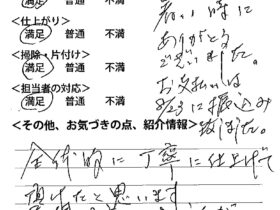 満足 普通 不満
<仕上がり>
満足 普通 不満
<掃除・片付け>
満足 普通 不満
<担当者の対応>
満足 普通 不満
暑い時に
ありがとう
ございました。
お支払いは
振込み
<その他、お気づきの点、紹介情報>
全体的に丁寧に仕上げて
頂けたと思います